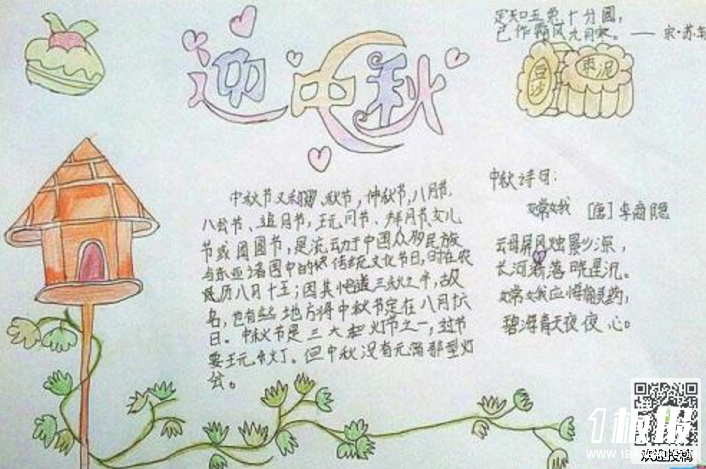 迎中秋
定知玉兔十分圆,
已作霜风九月寒。——宋·苏轼
豆沙
枣泥
中秋节又称月夕、秋节,仲秋节,八月节,
八会节、追月节,玩月节、拜月节、女儿
节或团圆节,是流动于中国众多民族
与东亚诸国中的传统文化节日,时在农
历八月十五;因其恰值三秋之半,故
名,也有些地方将中秋节定在八月十六
日。中秋节是三大灯节之一,过节
要玩灯。但中秋没有元宵那型灯
会。
中秋诗曰:
嫦娥 [唐]李商隐
云母屏风烛影深,
长河渐落晓星沉。
嫦娥应悔偷灵药,
碧海青天夜夜心。